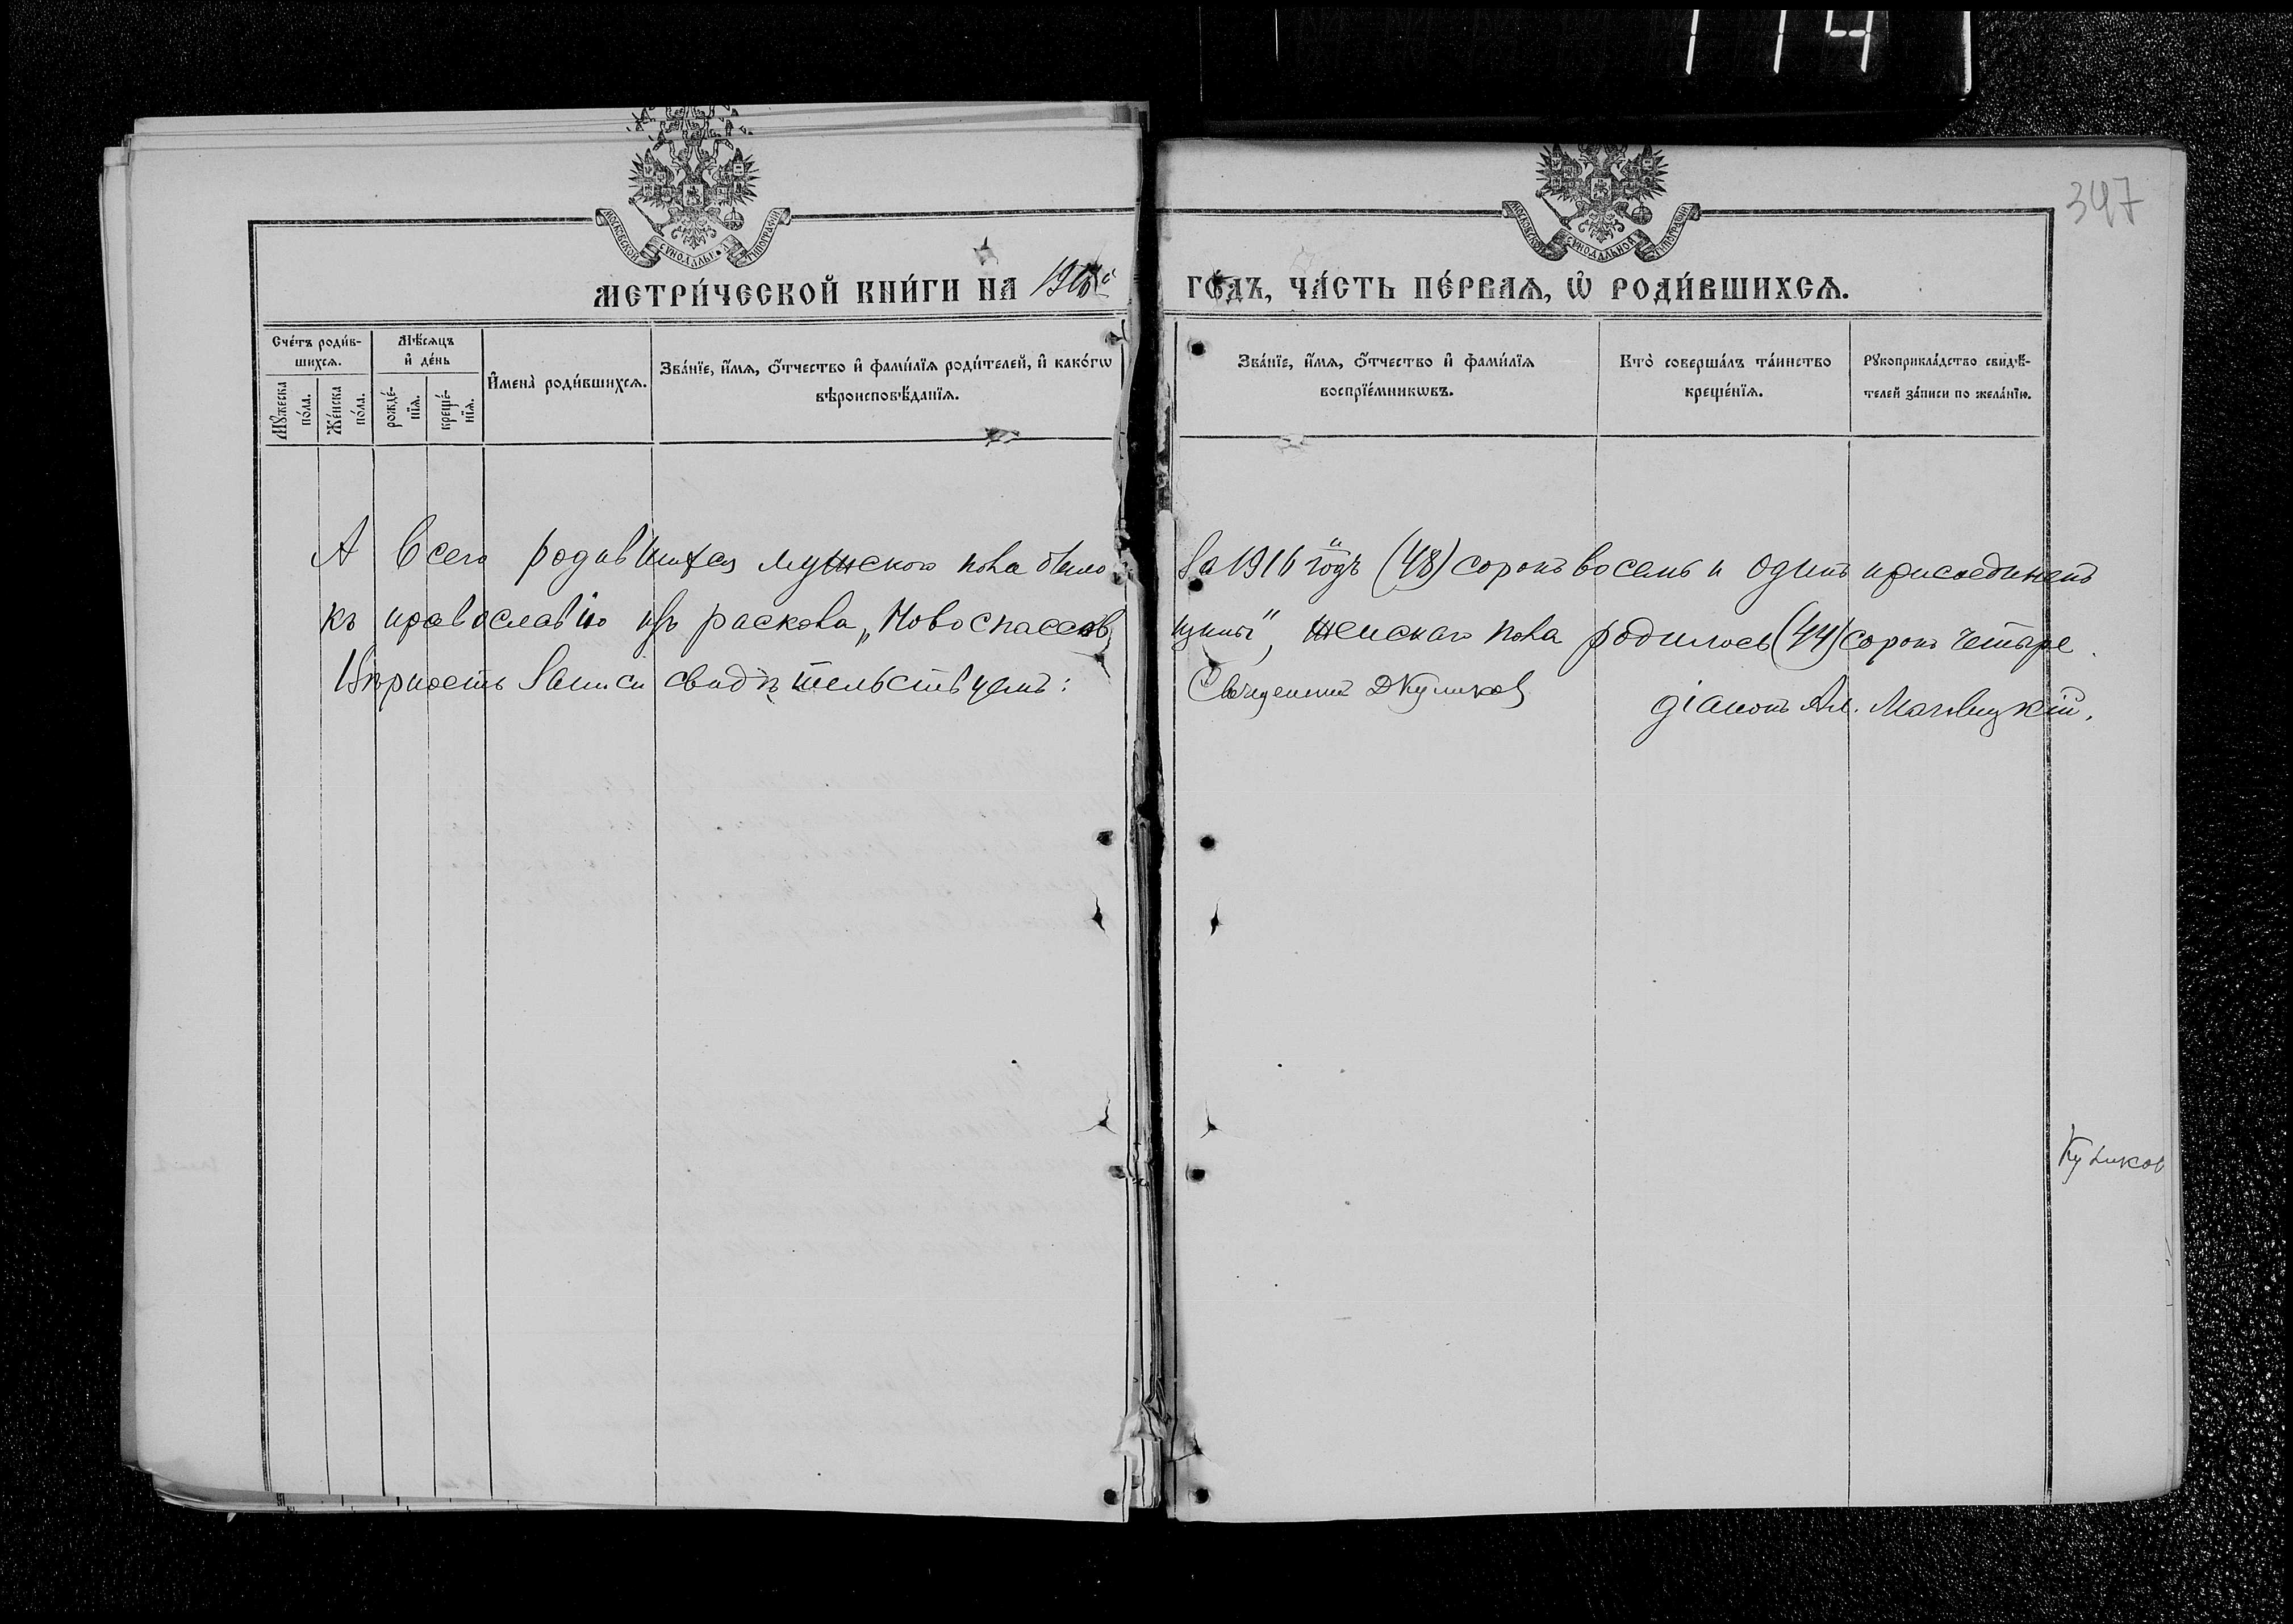 114
347
МОСКОВСКОЙ СѴНОДАЛЬНОЙ ТИПОГРАФІИ
МОСКОВСКОЙ СѴНОДАЛЬНОЙ ТИПОГРАФІИ
МЕТРИ́ЧЕСКОЙ КНИ́ГИ НА 1916й ГО́ДЪ, ЧА́СТЬ ПЕ́РВАѦ, Ѡ҆ РОДИ́ВШИХСѦ.
Сче́тъ роди́в-
шихсѧ.
Мꙋ́жеска по́ла.
Же́нска по́ла.
Мѣ́сѧцъ и҆ де́нь
рожде́-нїѧ.
креще́-нїѧ.
И҆мена̀ роди́вшихсѧ.
Зва́нїе, и҆́мѧ, ѻ҆́тчество и҆ фами́лїѧ роди́телей, и҆ како́гѡ
вѣроисповѣ́данїѧ.
Зва́нїе, и҆́мѧ, ѻ҆́тчество и҆ фами́лїѧ
воспрїе́мникѡвъ.
Кто̀ соверша́лъ та́инство
креще́нїѧ.
Рꙋкоприкла́дство свидѣ́-
телей за́писи по жела́нїю.
А всего родившихся мужскаго пола было за 1916й годъ (48) сорокъ восемь и одинъ присоединенъ
къ православію изъ раскола „Новоспассовщины", женскаго пола родилось (44) сорокъ четыре.
Вѣрность записи свидѣтельствуемъ: Священникъ Д Куликов
діаконъ Ал.
Куликов